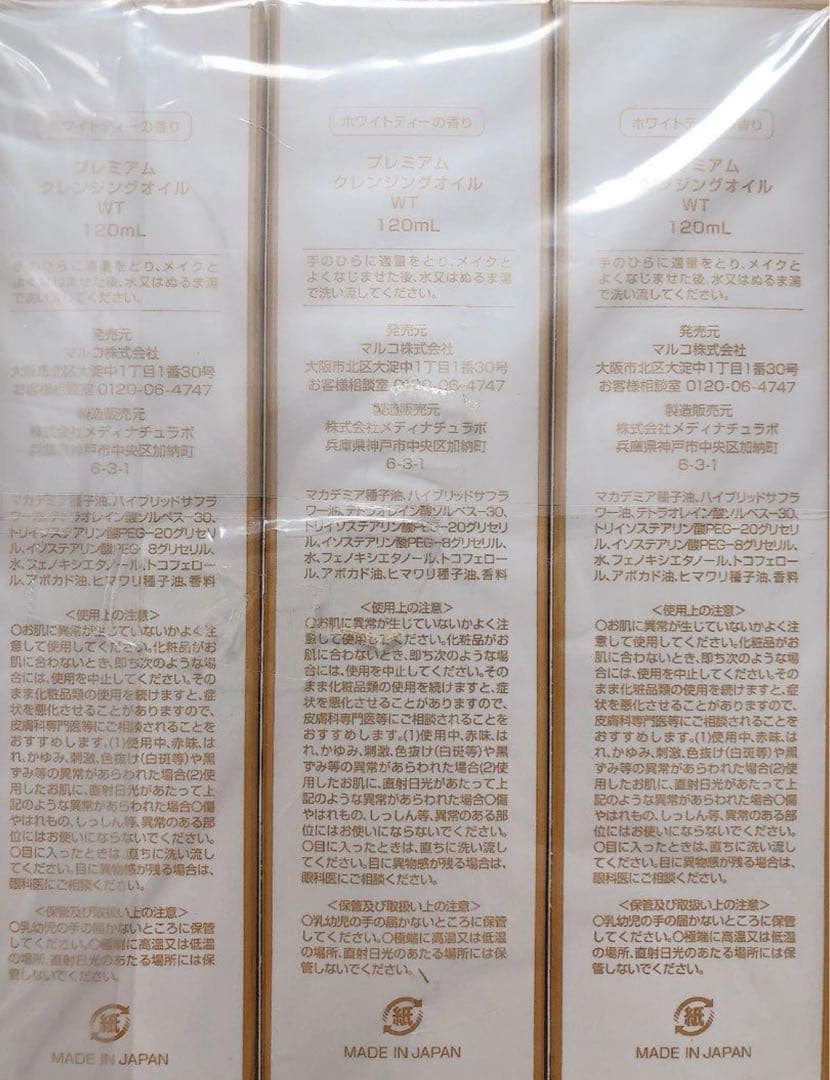 ホワイトティーの香り
プレミアム
クレンジングオイル
WT
120mL
手のひらに適量をとり、メイクと
よくなじませた後、水又はぬるま湯
で洗い流してください。
発売元
マルコ株式会社
大阪市北区大淀中1丁目1番30号
お客様相談室 0120-06-4747
製造販売元
株式会社メディナチュラボ
兵庫県神戸市中央区加納町
6-3-1
マカデミア種子油、ハイブリッドサフラ
ワー油、テトラオレイン酸ソルベス-30、
トリイソステアリン酸PEG-20グリセリ
ル、イソステアリン酸PEG-8グリセリル、
水、フェノキシエタノール、トコフェロー
ル、アボカド油、ヒマワリ種子油、香料
<使用上の注意>
○お肌に異常が生じていないかよく注
意して使用してください。化粧品がお
肌に合わないとき、即ち次のような場
合には、使用を中止してください。その
まま化粧品類の使用を続けますと、症
状を悪化させることがありますので、
皮膚科専門医等にご相談されることを
おすすめします。(1)使用中、赤味、は
れ、かゆみ、刺激、色抜け(白斑等)や黒
ずみ等の異常があらわれた場合(2)使
用したお肌に、直射日光があたって上
記のような異常があらわれた場合○傷
やはれもの、しっしん等、異常のある部
位にはお使いにならないでください。
○目に入ったときは、直ちに洗い流し
てください。目に異物感が残る場合は、
眼科医にご相談ください。
<保管及び取扱い上の注意>
○乳幼児の手の届かないところに保管
してください。○極端に高温又は低温
の場所、直射日光のあたる場所には保
管しないでください。
紙
MADE IN JAPAN
ホワイトティーの香り
プレミアム
クレンジングオイル
WT
120mL
手のひらに適量をとり、メイクと
よくなじませた後、水又はぬるま湯
で洗い流してください。
発売元
マルコ株式会社
大阪市北区大淀中1丁目1番30号
お客様相談室 0120-06-4747
製造販売元
株式会社メディナチュラボ
兵庫県神戸市中央区加納町
6-3-1
マカデミア種子油、ハイブリッドサフラ
ワー油、テトラオレイン酸ソルベス-30、
トリイソステアリン酸PEG-20グリセリ
ル、イソステアリン酸PEG-8グリセリル、
水、フェノキシエタノール、トコフェロー
ル、アボカド油、ヒマワリ種子油、香料
<使用上の注意>
○お肌に異常が生じていないかよく注
意して使用してください。化粧品がお
肌に合わないとき、即ち次のような場
合には、使用を中止してください。その
まま化粧品類の使用を続けますと、症
状を悪化させることがありますので、
皮膚科専門医等にご相談されることを
おすすめします。(1)使用中、赤味、は
れ、かゆみ、刺激、色抜け(白斑等)や黒
ずみ等の異常があらわれた場合(2)使
用したお肌に、直射日光があたって上
記のような異常があらわれた場合○傷
やはれもの、しっしん等、異常のある部
位にはお使いにならないでください。
○目に入ったときは、直ちに洗い流し
てください。目に異物感が残る場合は、
眼科医にご相談ください。
<保管及び取扱い上の注意>
○乳幼児の手の届かないところに保管
してください。○極端に高温又は低温
の場所、直射日光のあたる場所には保
管しないでください。
紙
MADE IN JAPAN
ホワイトティーの香り
プレミアム
クレンジングオイル
WT
120mL
手のひらに適量をとり、メイクと
よくなじませた後、水又はぬるま湯
で洗い流してください。
発売元
マルコ株式会社
大阪市北区大淀中1丁目1番30号
お客様相談室 0120-06-4747
製造販売元
株式会社メディナチュラボ
兵庫県神戸市中央区加納町
6-3-1
マカデミア種子油、ハイブリッドサフラ
ワー油、テトラオレイン酸ソルベス-30、
トリイソステアリン酸PEG-20グリセリ
ル、イソステアリン酸PEG-8グリセリル、
水、フェノキシエタノール、トコフェロー
ル、アボカド油、ヒマワリ種子油、香料
<使用上の注意>
○お肌に異常が生じていないかよく注
意して使用してください。化粧品がお
肌に合わないとき、即ち次のような場
合には、使用を中止してください。その
まま化粧品類の使用を続けますと、症
状を悪化させることがありますので、
皮膚科専門医等にご相談されることを
おすすめします。(1)使用中、赤味、は
れ、かゆみ、刺激、色抜け(白斑等)や黒
ずみ等の異常があらわれた場合(2)使
用したお肌に、直射日光があたって上
記のような異常があらわれた場合○傷
やはれもの、しっしん等、異常のある部
位にはお使いにならないでください。
○目に入ったときは、直ちに洗い流し
てください。目に異物感が残る場合は、
眼科医にご相談ください。
<保管及び取扱い上の注意>
○乳幼児の手の届かないところに保管
してください。○極端に高温又は低温
の場所、直射日光のあたる場所には保
管しないでください。
紙
MADE IN JAPAN